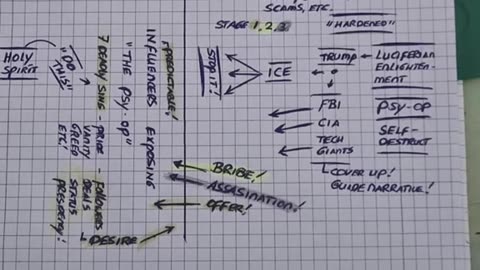 SCAMS, ETC.
STAGE 1, 2, 3
"HARDENED"
TRUMP
LUCIFERIAN
ENLIGHTEN-
MENT
ICE
STOP IT!
FBI
CIA
TECH
GIANTS
PSY-OP
SELF-
DESTRUCT
COVER UP!
GUIDE NARRATIVE!
BRIBE!
ASSASINATION!
OFFER!
HOLY
SPIRIT
"DO
THIS"
7 DEADLY SINS - PRIDE
VANITY
GREED
ETC!
- FOLLOWERS
DEALS
STATUS
PRESIDENCY!
DESIRE
"THE PSY-OP"
INFLUENCERS EXPOSING
PREDICTABLE!